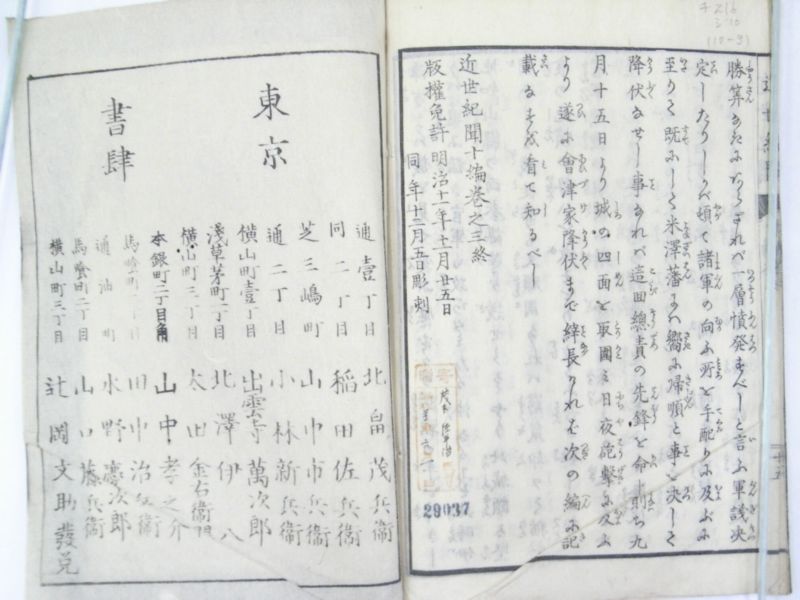 勝算あたふべうらざれバ一層憤発すべしと言ふ軍議決
定したりしかバ頓て諸軍の向ふ所を手配りに及ぶに
至りて既にして米澤藩にハ嚮に帰順と事を決して
降伏なせし事なれバ這回總責の先鋒を命ト則ち九
月十五日より城の四面を取圍ミ日夜砲撃に及ぶ
より遂に會津家降伏まで綷長けれバ次の編に記
載なすを看て知るべし
近世紀聞十編巻之三終
版權免許明治十一年十月廿五日
同年十二月五日彫刻
29037
東京
書肆
通壹丁目 北畠茂兵衛
同二丁目 稲田佐兵衛
芝三嶋町 山中市兵衛
通二丁目 小林新兵衛
横山町壹丁目 出雲寺萬次郎
浅草茅町二丁目 北澤伊八
横山町三丁目 太田金右衛門
本銀町二丁目角 山中孝之介
馬喰町二丁目 田中治兵衛
通油町 水野慶次郎
馬喰町二丁目 山口藤兵衛
横山町三丁目 辻岡文助發兌
4216
3-10
(10-3)